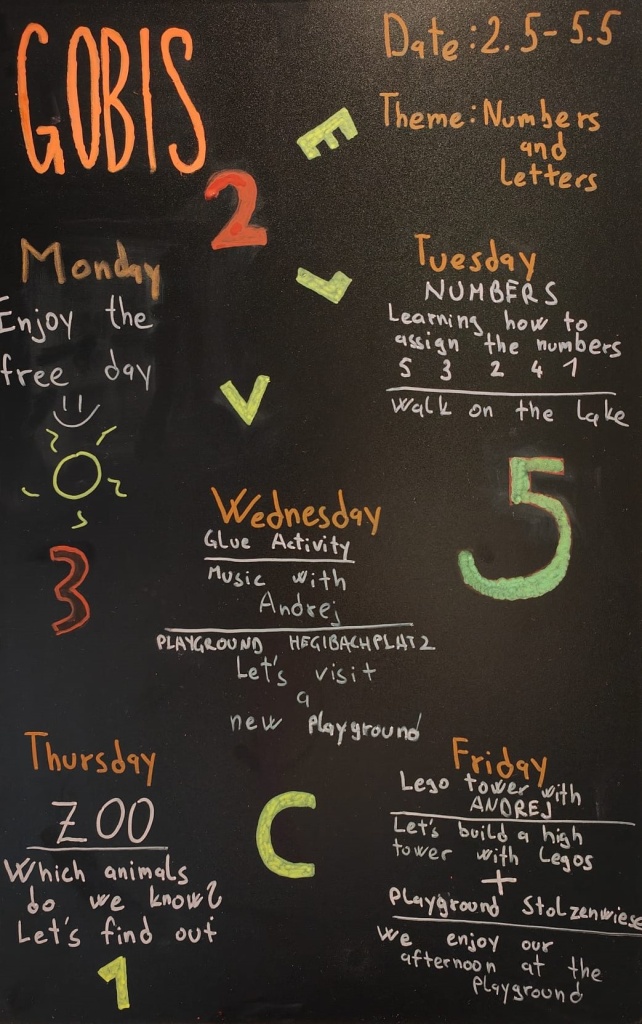 GOBIS
Date: 2.5 - 5.5
Theme: Numbers
and
Letters
E
2
Monday
Enjoy the
free day
L
V
Tuesday
NUMBERS
Learning how to
assign the numbers
5 3 2 4 1
Walk on the Lake
3
5
Wednesday
Glue Activity
Music with
Andrej
PLAYGROUND HEGIBACHPLATZ
Let's visit
a
new playground
Thursday
ZOO
Which animals
do we know?
Let's find out
1
C
Friday
Lego tower with
ANDREJ
Let's build a high
tower with Legos
+
Playground Stolzenwiese
We enjoy our
afternoon at the
playground